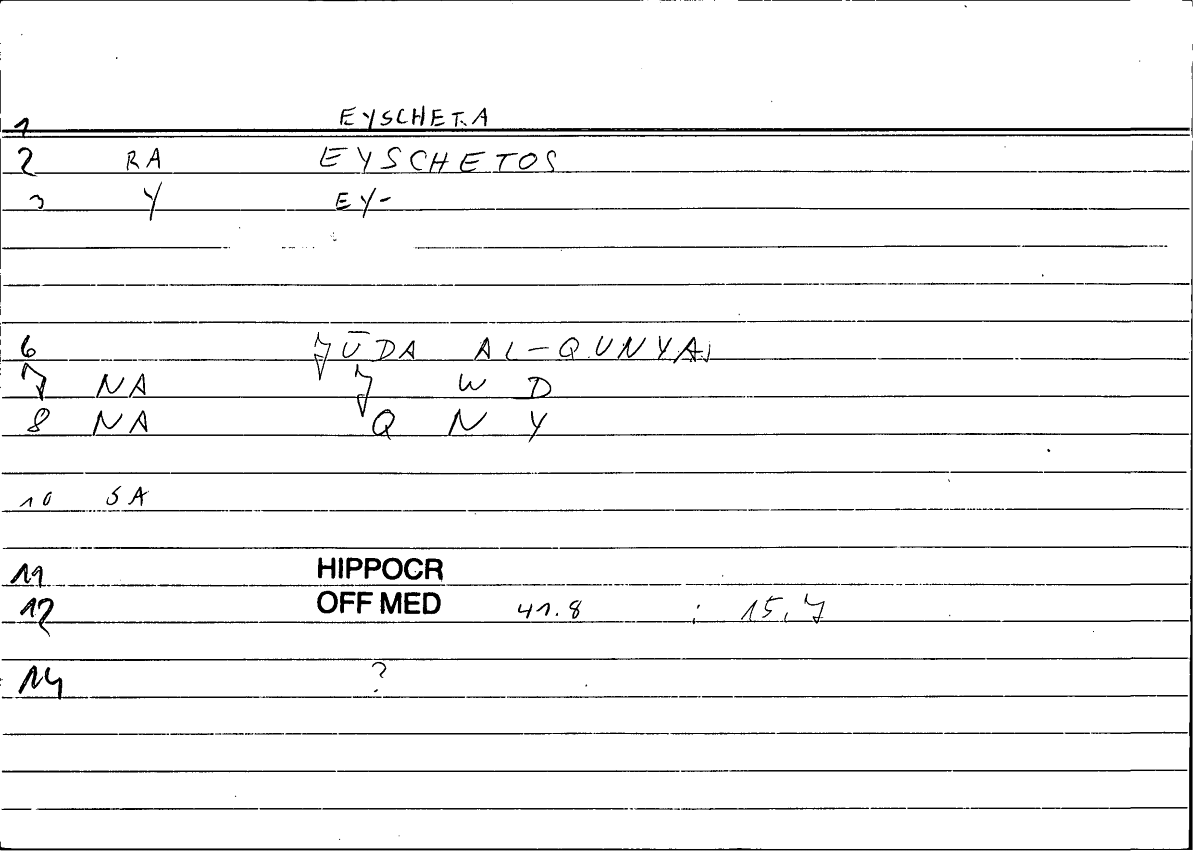 1 EYSCHET.A
2 RA EYSCHETOS
3 Y EY-
6 ǦŪDA AL-QUNYA
7 NA Ǧ W D
8 NA Q N Y
10 SA
11 HIPPOCR
12 OFF MED 41.8 : 15,7
14 ?